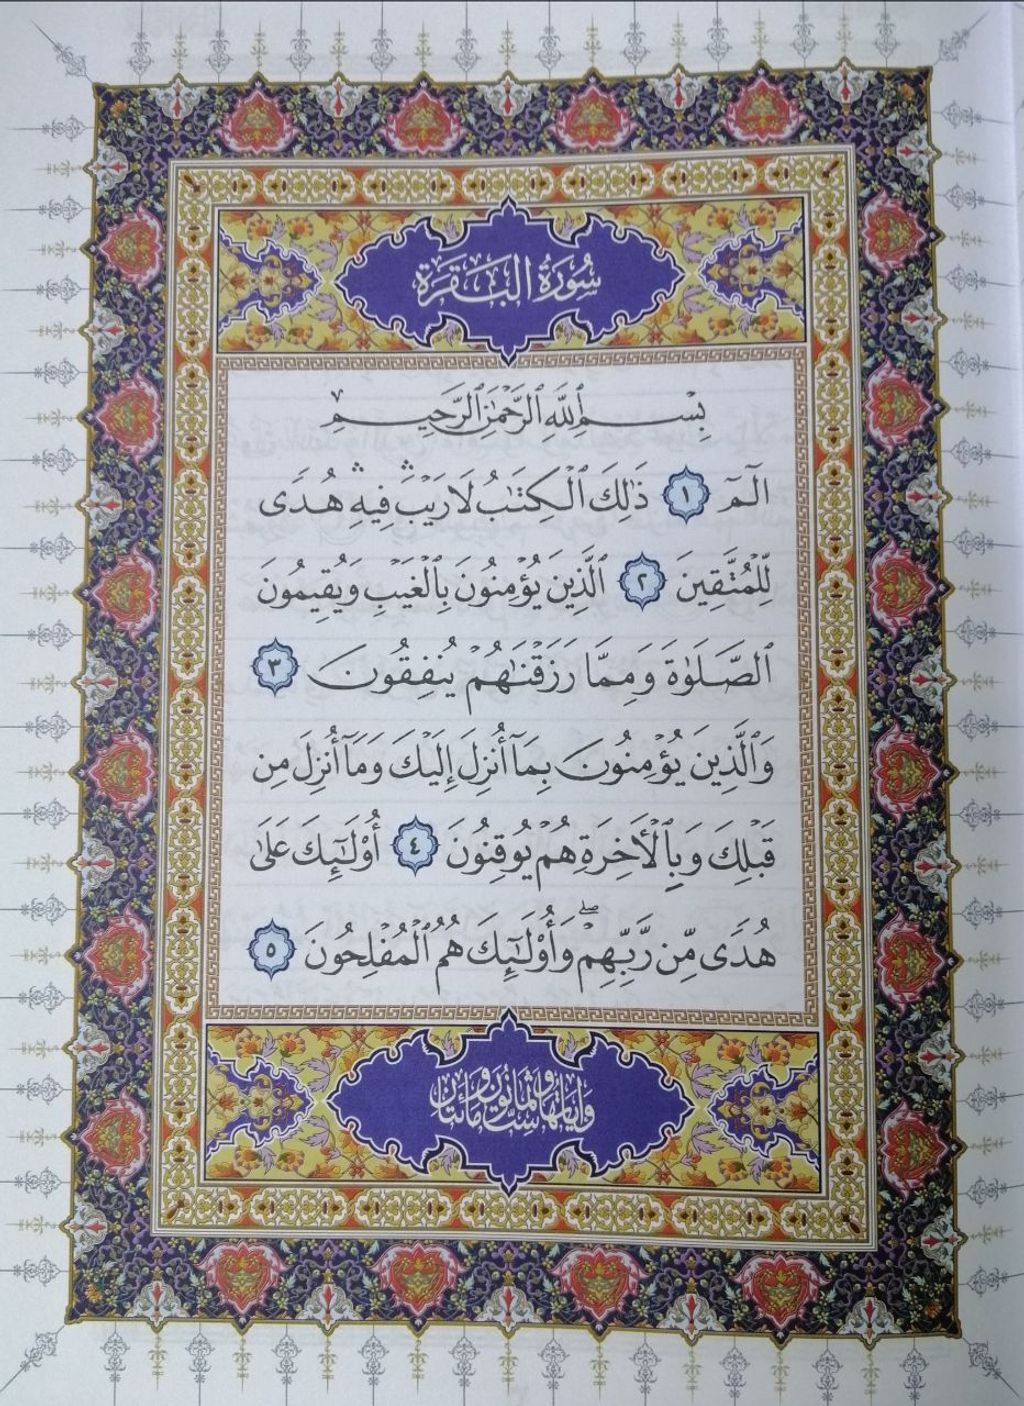 سُورَةُ البَقَرَة
بِسْمِ ٱللَّهِ ٱلرَّحْمَٰنِ ٱلرَّحِيمِ
الٓمٓ ۝١ ذَٰلِكَ ٱلْكِتَٰبُ لَا رَيْبَ ۛ فِيهِ ۛ هُدًى
لِّلْمُتَّقِينَ ۝٢ ٱلَّذِينَ يُؤْمِنُونَ بِٱلْغَيْبِ وَيُقِيمُونَ
ٱلصَّلَوٰةَ وَمِمَّا رَزَقْنَٰهُمْ يُنفِقُونَ ۝٣
وَٱلَّذِينَ يُؤْمِنُونَ بِمَآ أُنزِلَ إِلَيْكَ وَمَآ أُنزِلَ مِن
قَبْلِكَ وَبِٱلْأَخِرَةِ هُمْ يُوقِنُونَ ۝٤ أُوْلَٰٓئِكَ عَلَىٰ
هُدًى مِّن رَّبِّهِمْ ۖ وَأُوْلَٰٓئِكَ هُمُ ٱلْمُفْلِحُونَ ۝٥
وَآيَاتُهَا سِتٌّ وَثَمَانُونَ وَمَائَتَان